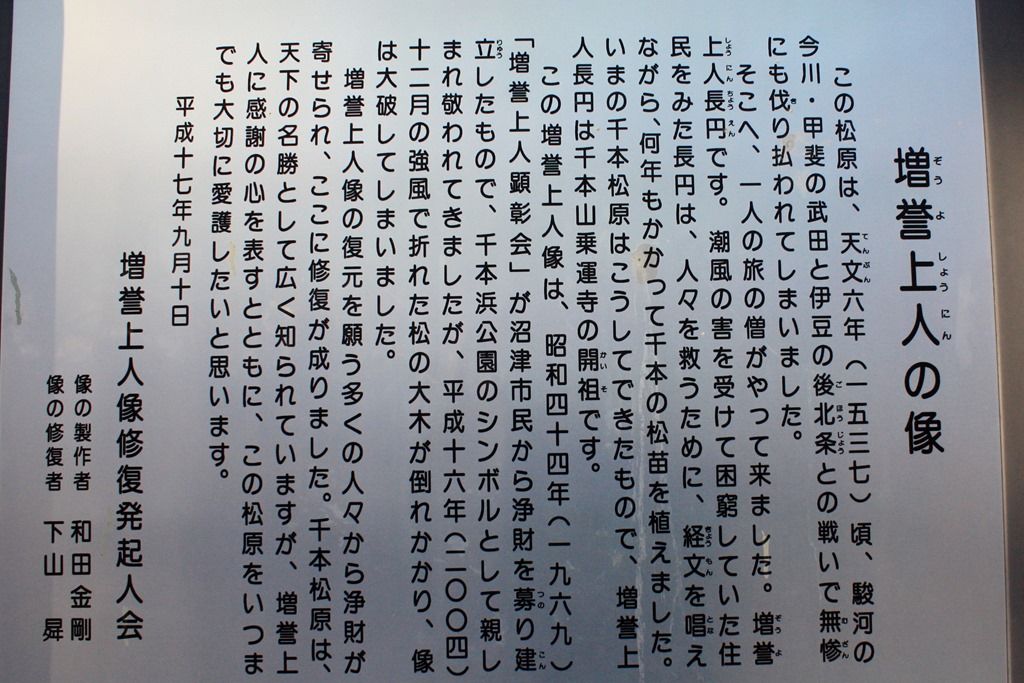 増誉上人の像
この松原は、天文六年（一五三七）頃、駿河の
今川・甲斐の武田と伊豆の後北条との戦いで無惨
にも伐り払われてしまいました。
そこへ、一人の旅の僧がやって来ました。増誉
上人長円です。潮風の害を受けて困窮していた住
民をみた長円は、人々を救うために、経文を唱え
ながら、何年もかかって千本の松苗を植えました。
いまの千本松原はこうしてできたもので、増誉上
人長円は千本山乗運寺の開祖です。
この増誉上人像は、昭和四十四年（一九六九）
「増誉上人顕彰会」が沼津市民から浄財を募り建
立したもので、千本浜公園のシンボルとして親し
まれ敬われてきましたが、平成十六年（二〇〇四）
十二月の強風で折れた松の大木が倒れかかり、像
は大破してしまいました。
増誉上人像の復元を願う多くの人々から浄財が
寄せられ、ここに修復が成りました。千本松原は、
天下の名勝として広く知られていますが、増誉上
人に感謝の心を表すとともに、この松原をいつま
でも大切に愛護したいと思います。
平成十七年九月十日
増誉上人像修復発起人会
像の製作者 和田金剛
像の修復者 下山 曻